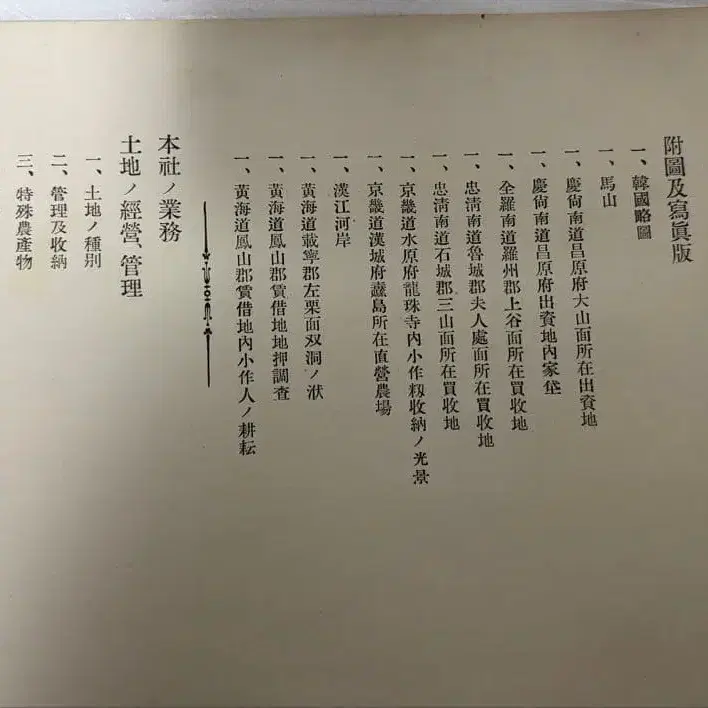 附圖及寫眞版
一、韓國略圖
一、馬山
一、慶尙南道昌原府大山面所在出資地
一、慶尙南道昌原府出資地內家垈
一、全羅南道羅州郡上谷面所在買收地
一、忠淸南道魯城郡夫人處面所在買收地
一、忠淸南道石城郡三山面所在買收地
一、京畿道水原府龍珠寺內小作籾收納ノ光景
一、京畿道漢城府纛島所在直營農場
一、漢江河岸
一、黃海道載寧郡左栗面双洞ノ洑
一、黃海道鳳山郡賃借地地押調査
一、黃海道鳳山郡賃借地內小作人ノ耕耘
本社ノ業務
土地ノ經營、管理
一、土地ノ種別
二、管理及收納
三、特殊農產物